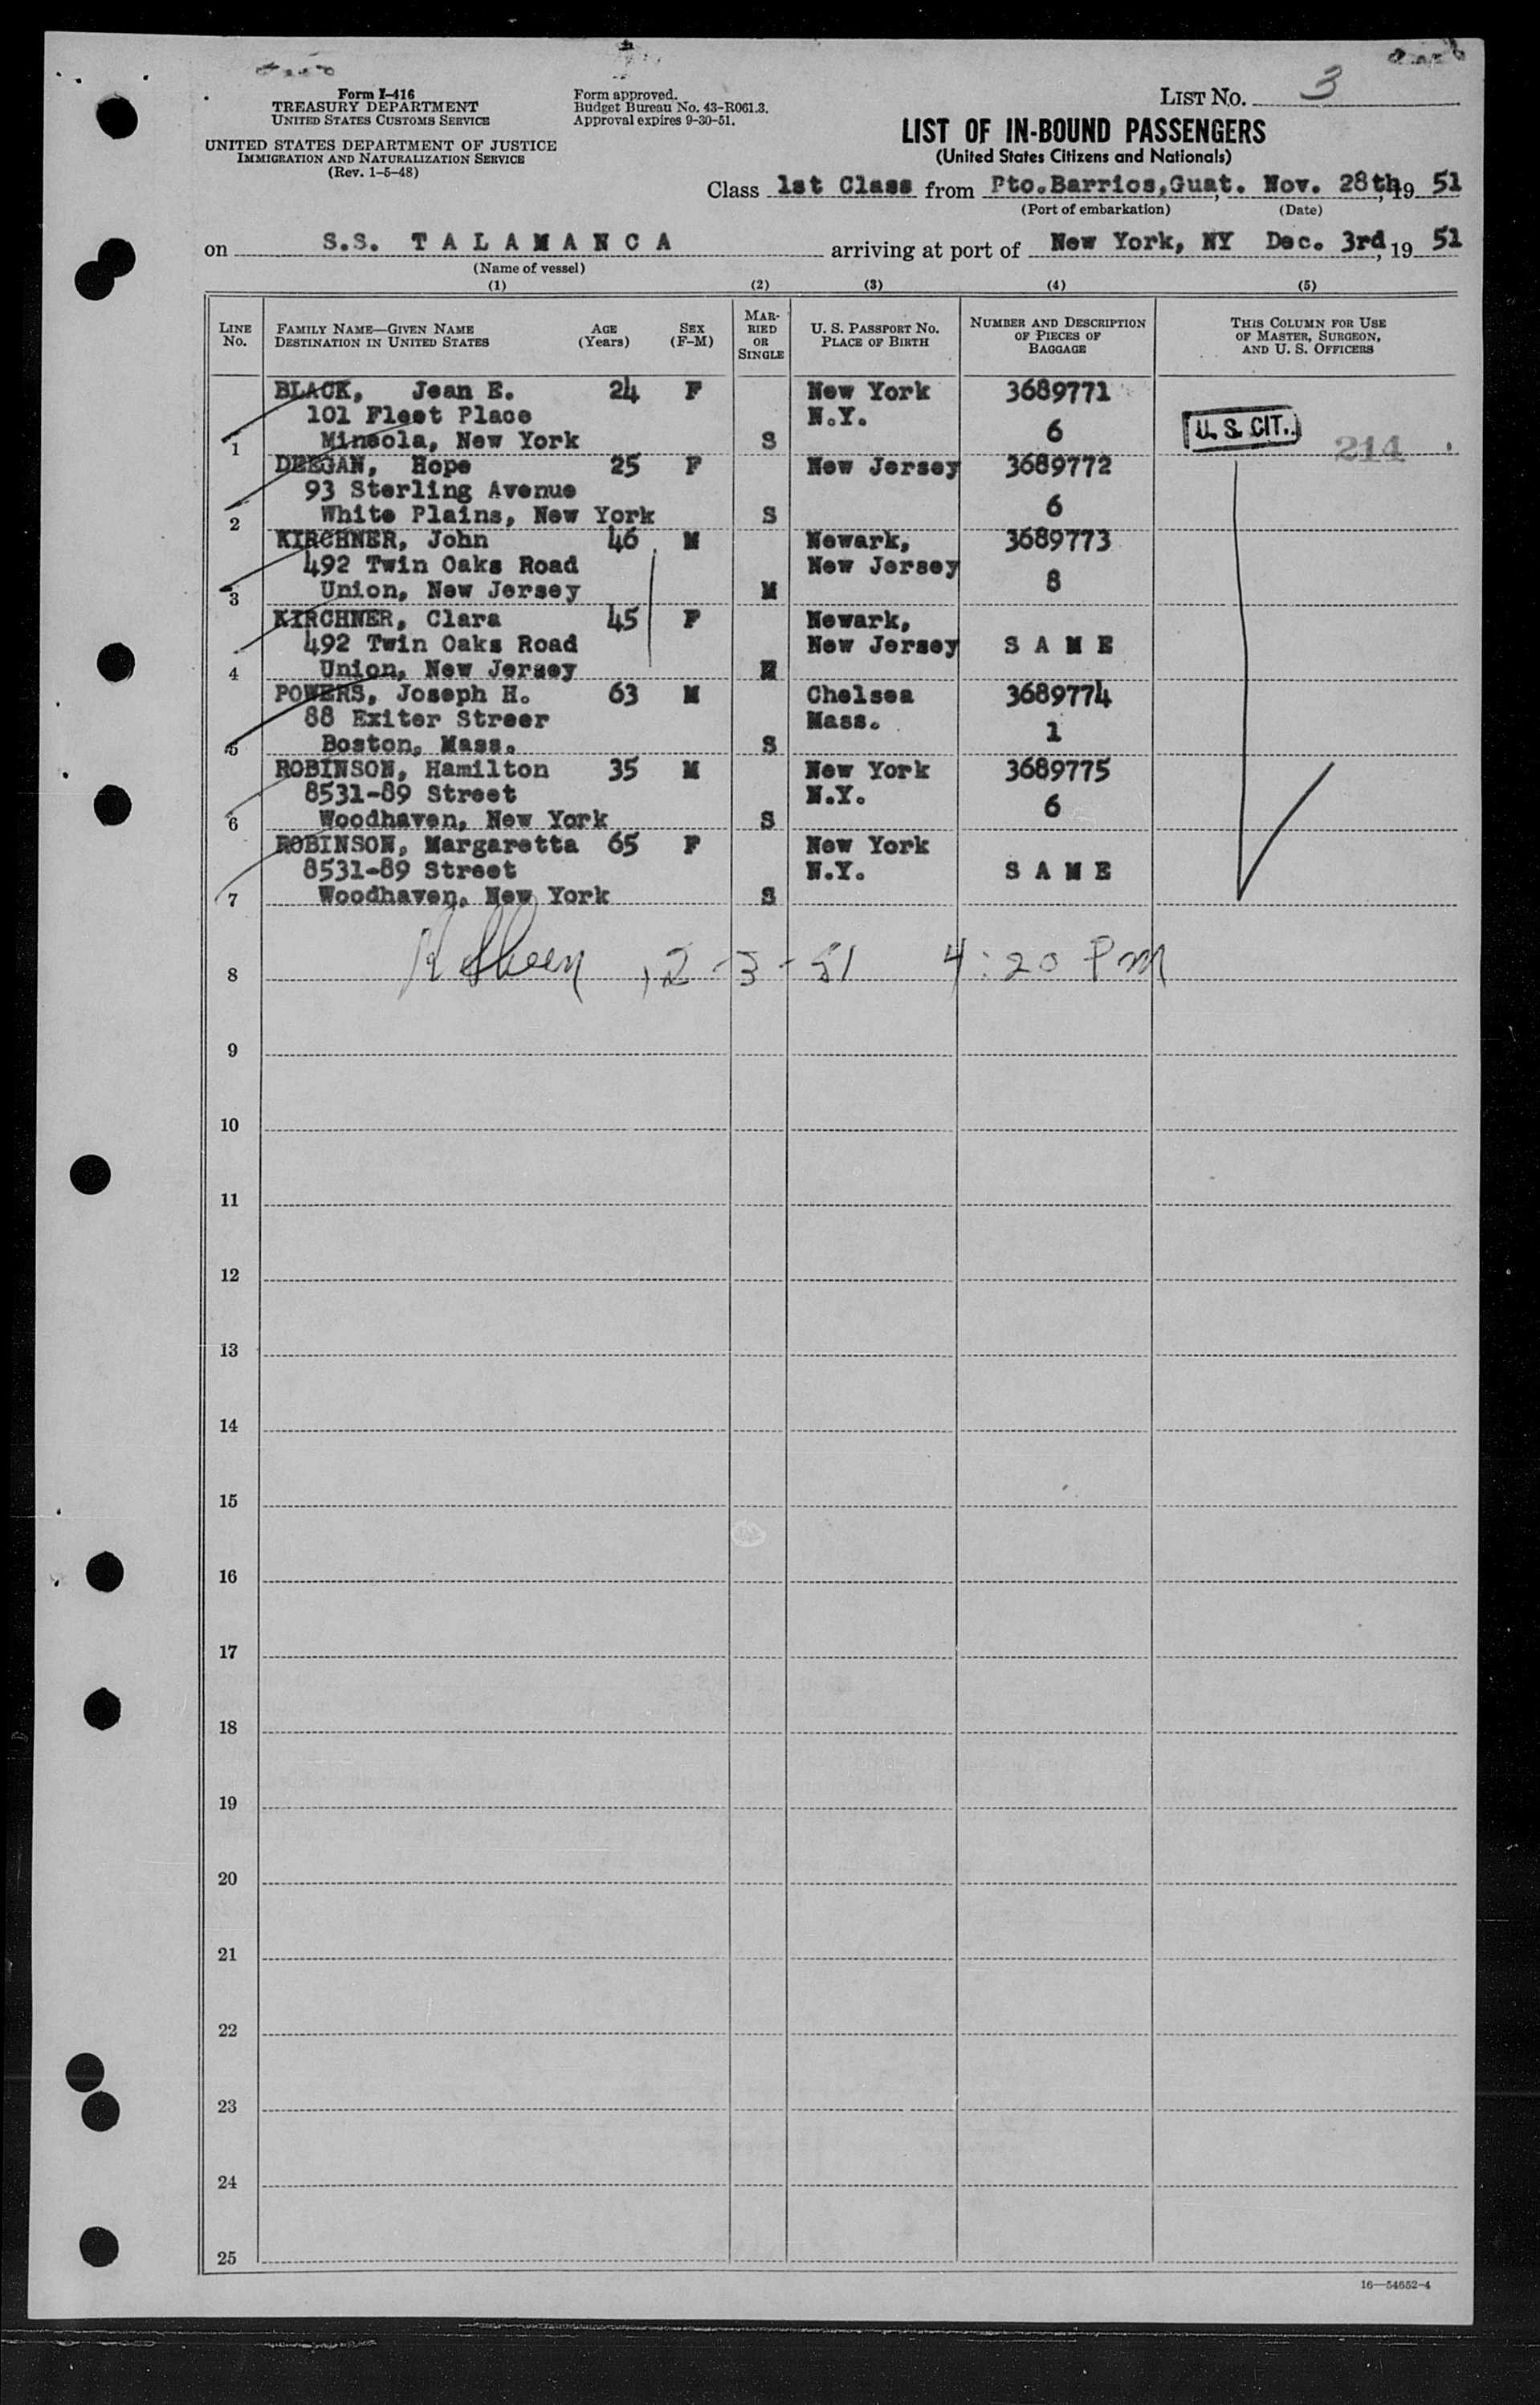 Form I-416
TREASURY DEPARTMENT
UNITED STATES CUSTOMS SERVICE
UNITED STATES DEPARTMENT OF JUSTICE
IMMIGRATION AND NATURALIZATION SERVICE
(Rev. 1-5-48)
Form approved.
Budget Bureau No. 43-R061.3.
Approval expires 9-30-51.
LIST NO. 3
LIST OF IN-BOUND PASSENGERS
(United States Citizens and Nationals)
Class 1st Class from Pto.Barrios,Guat. Nov. 28th, 19 51
(Port of embarkation) (Date)
on S.S. TALAMANCA arriving at port of New York, NY Dec. 3rd, 19 51
(Name of vessel)
(1) (2) (3) (4) (5)
LINE No. FAMILY NAME—GIVEN NAME DESTINATION IN UNITED STATES AGE (Years) SEX (F-M) MARRIED OR SINGLE U. S. PASSPORT NO. PLACE OF BIRTH NUMBER AND DESCRIPTION OF PIECES OF BAGGAGE THIS COLUMN FOR USE OF MASTER, SURGEON, AND U. S. OFFICERS
BLACK, Jean E. 24 F New York 3689771
101 Fleet Place N.Y.
1 Mineola, New York S 6 U. S. CIT. 214
DEEGAN, Hope 25 F New Jersey 3689772
93 Sterling Avenue
2 White Plains, New York S 6
KIRCHNER, John 46 M Newark, 3689773
492 Twin Oaks Road New Jersey
3 Union, New Jersey M 8
KIRCHNER, Clara 45 F Newark,
492 Twin Oaks Road New Jersey SAME
4 Union, New Jersey M
POWERS, Joseph H. 63 M Chelsea 3689774
88 Exiter Streer Mass.
5 Boston, Mass. S 1
ROBINSON, Hamilton 35 M New York 3689775
8531-89 Street N.Y.
6 Woodhaven, New York S 6
ROBINSON, Margaretta 65 F New York
8531-89 Street N.Y. SAME
7 Woodhaven, New York S
8 12-3-51 4:20 PM
9
10
11
12
13
14
15
16
17
18
19
20
21
22
23
24
25
16—54652-4